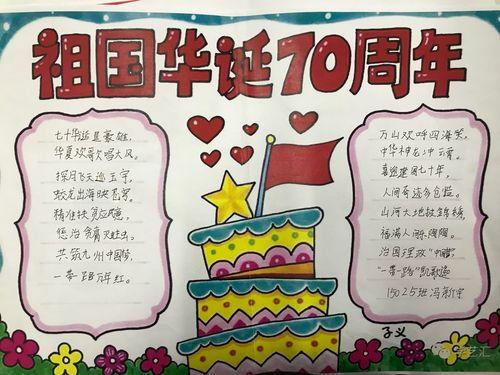 祖国华诞70周年
七十华诞显豪雄，
华夏欢歌唱大风。
探月飞天巡玉宇，
蛟龙出海映苍穹。
精准扶贫
惩治贪腐灭蛀虫。
共筑九州中国梦，
一带一路万年红。
万山欢呼四海笑，
中华神龙冲云霄。
喜迎建国七十年，
人间奇迹
山河大地披锦绣，
福满人间
治国理政"中
"一带一路"凯歌
15025班冯新宇
子义
学艺汇